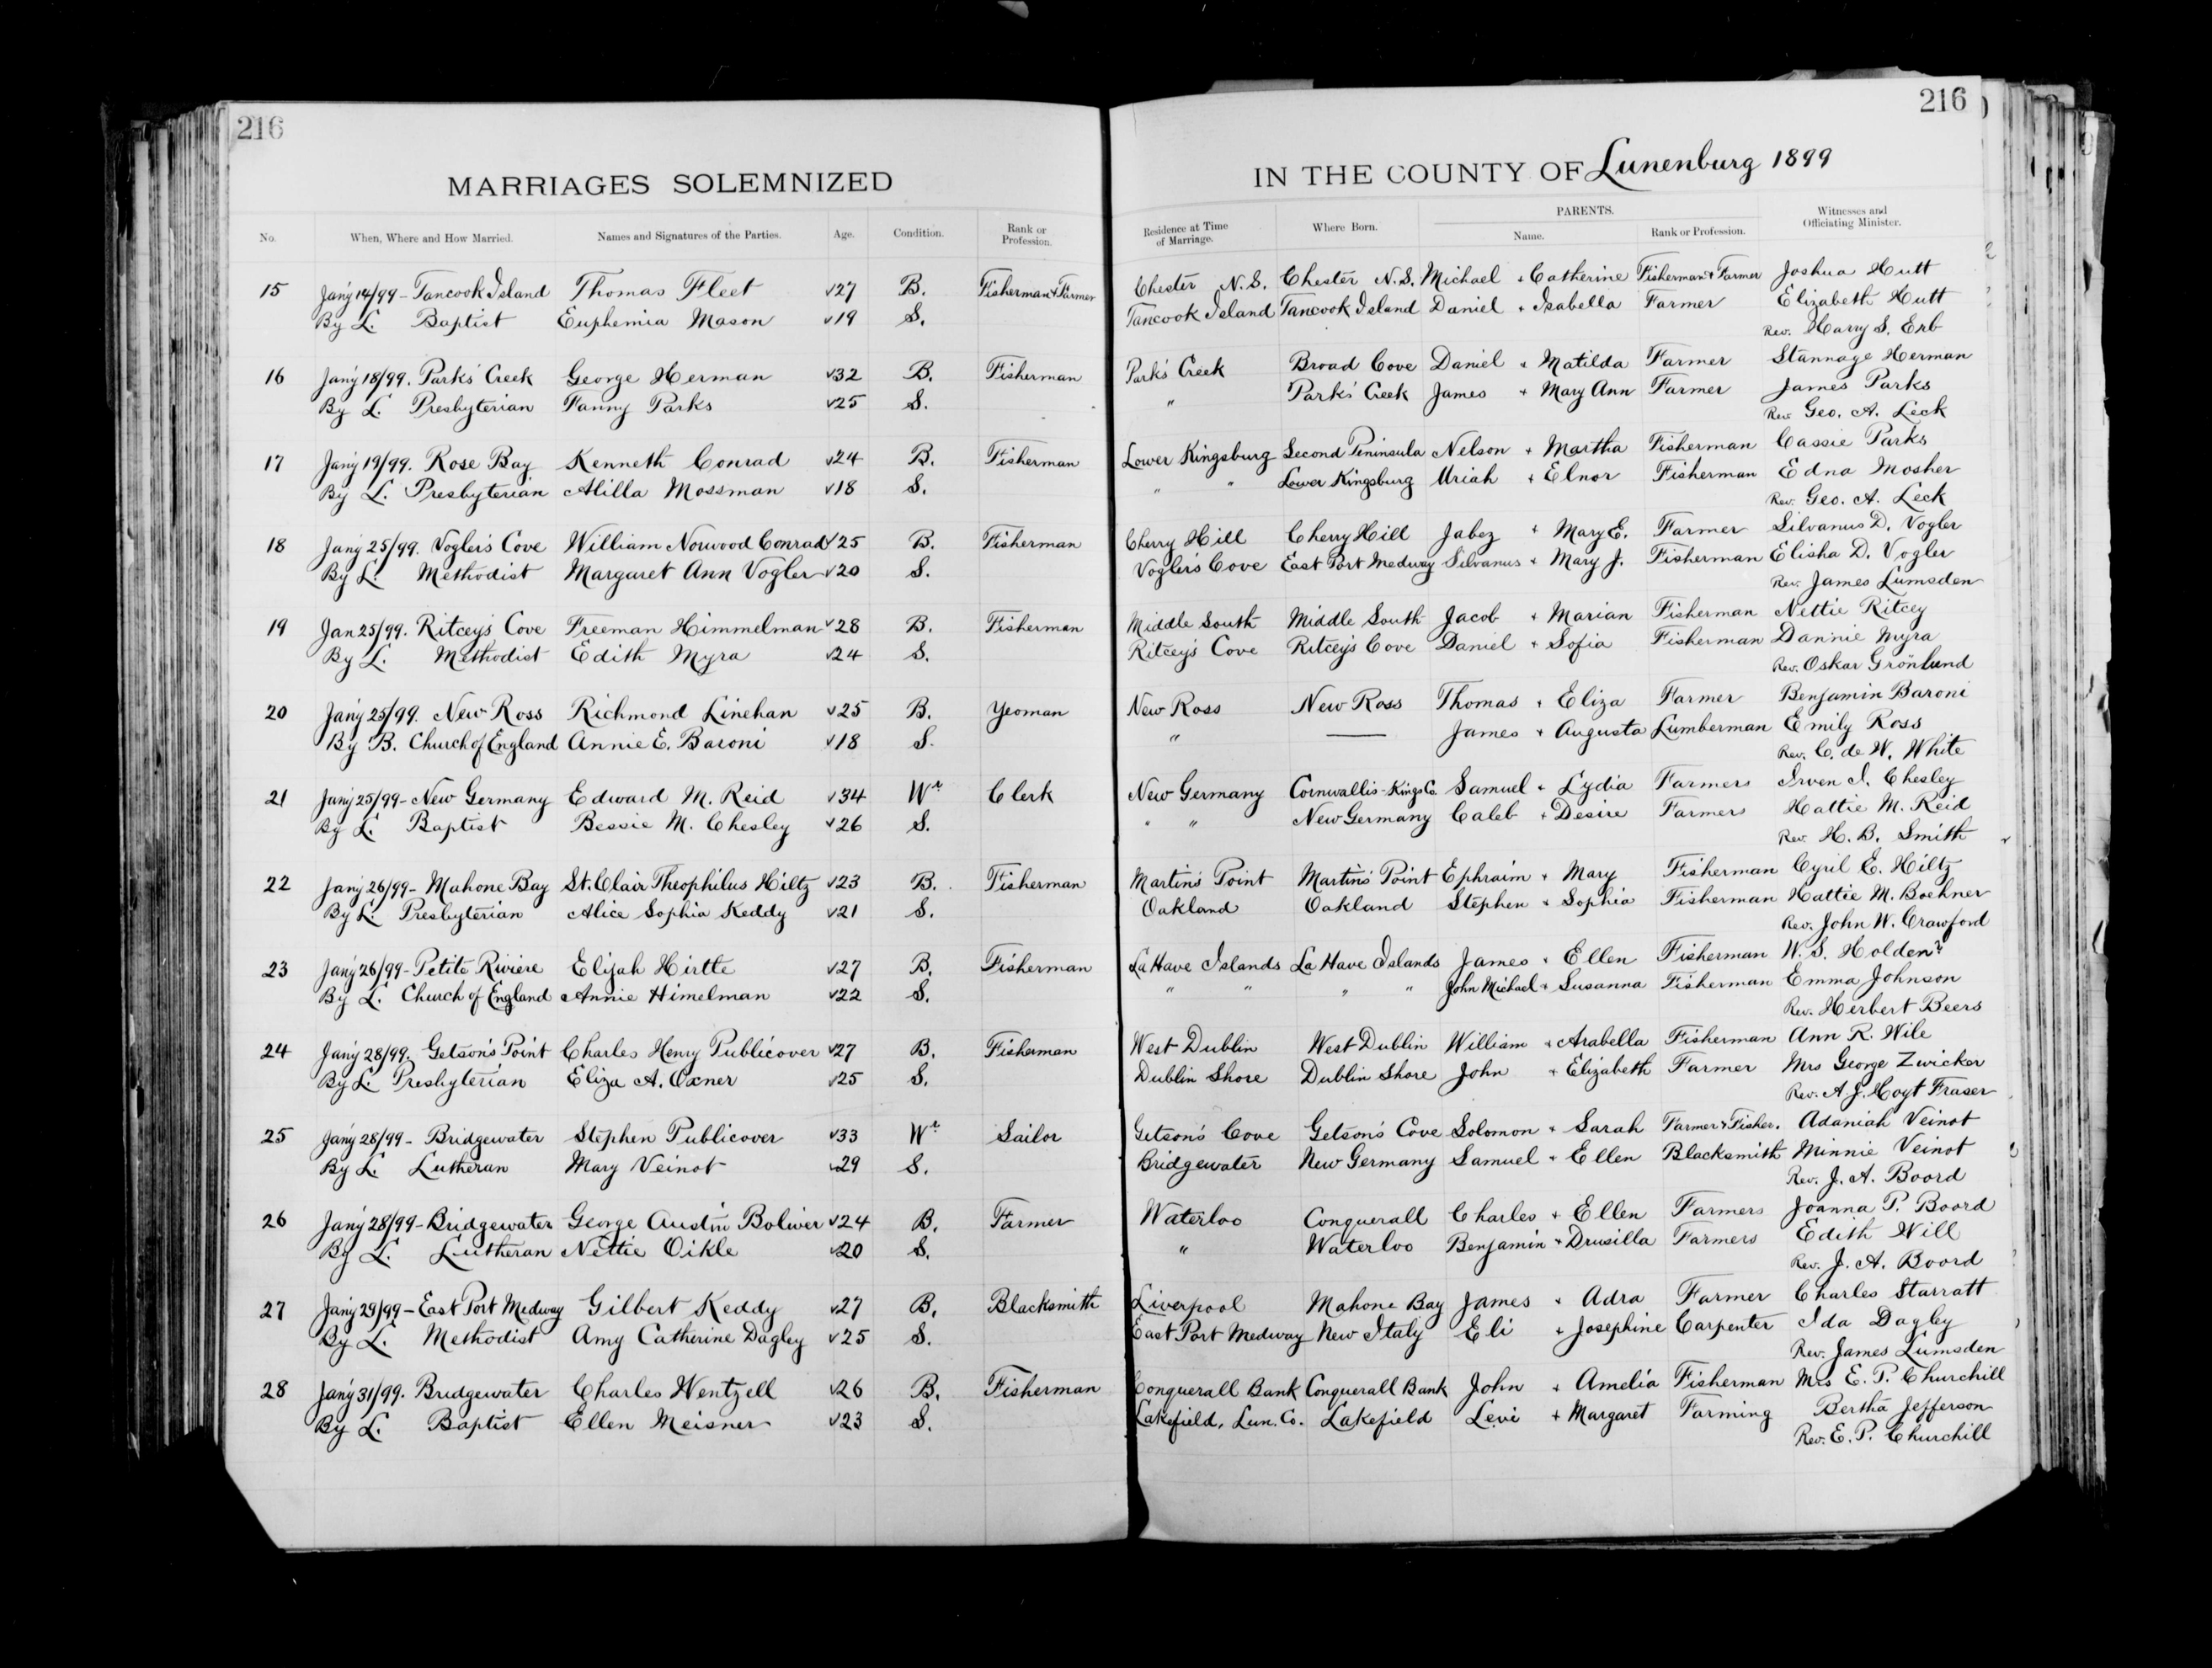 216
216
MARRIAGES SOLEMNIZED
IN THE COUNTY OF Lunenburg 1899
No. When, Where and How Married. Names and Signatures of the Parties. Age. Condition. Rank or Profession. Residence at Time of Marriage. Where Born. PARENTS. Name. Rank or Profession. Witnesses and Officiating Minister.
15 Jan'y 14/99 - Tancook Island Thomas Fleet 27 B. Fisherman & Farmer Chester N.S. Chester N.S. Michael & Catherine Fisherman & Farmer Joshua Hutt
By L. Baptist Euphemia Mason 19 S. Tancook Island Tancook Island Daniel & Isabella Farmer Elizabeth Hutt
Rev. Harry S. Erb
16 Jan'y 18/99. Parks' Creek George Herman 32 B. Fisherman Park's Creek Broad Cove Daniel & Matilda Farmer Stannage Herman
By L. Presbyterian Fanny Parks 25 S. " Parks' Creek James & Mary Ann Farmer James Parks
Rev. Geo. A. Leck
17 Jan'y 19/99. Rose Bay Kenneth Conrad 24 B. Fisherman Lower Kingsburg Second Peninsula Nelson & Martha Fisherman Cassie Parks
By L. Presbyterian Alilla Mossman 18 S. " " Lower Kingsburg Uriah & Elnor Fisherman Edna Mosher
Rev. Geo. A. Leck
18 Jan'y 25/99. Vogler's Cove William Norwood Conrad 25 B. Fisherman Cherry Hill Cherry Hill Jabez & Mary E. Farmer Silvanus D. Vogler
By L. Methodist Margaret Ann Vogler 20 S. Vogler's Cove East Port Medway Silvanus & Mary J. Fisherman Elisha D. Vogler
Rev. James Lumsden
19 Jan 25/99. Ritcey's Cove Freeman Himmelman 28 B. Fisherman Middle South Middle South Jacob & Marian Fisherman Nettie Ritcey
By L. Methodist Edith Myra 24 S. Ritcey's Cove Ritcey's Cove Daniel & Sofia Fisherman Dannie Myra
Rev. Oskar Grönlund
20 Jan'y 25/99. New Ross Richmond Linehan 25 B. Yeoman New Ross New Ross Thomas & Eliza Farmer Benjamin Baroni
By B. Church of England Annie E. Baroni 18 S. " — James & Augusta Lumberman Emily Ross
Rev. C. de W. White
21 Jan'y 25/99 - New Germany Edward M. Reid 34 Wr Clerk New Germany Cornwallis - Kings Co. Samuel & Lydia Farmers Irven I. Chesley
By L. Baptist Bessie M. Chesley 26 S. " " New Germany Caleb & Desire Farmers Hattie M. Reid
Rev. H. B. Smith
22 Jan'y 26/99 - Mahone Bay St. Clair Theophilus Hiltz 23 B. Fisherman Martin's Point Martin's Point Ephraim & Mary Fisherman Cyril E. Hiltz
By L. Presbyterian Alice Sophia Keddy 21 S. Oakland Oakland Stephen & Sophia Fisherman Hattie M. Boehner
Rev. John W. Crawford
23 Jan'y 26/99 - Petite Riviere Elijah Hirtle 27 B. Fisherman La Have Islands La Have Islands James & Ellen Fisherman W. S. Holden?
By L. Church of England Annie Himelman 22 S. " " " " John Michael & Susanna Fisherman Emma Johnson
Rev. Herbert Beers
24 Jan'y 28/99. Getson's Point Charles Henry Publicover 27 B. Fisherman West Dublin West Dublin William & Arabella Fisherman Ann R. Wile
By L. Presbyterian Eliza A. Oxner 25 S. Dublin Shore Dublin Shore John & Elizabeth Farmer Mrs George Zwicker
Rev. A. J. Hoyt Fraser
25 Jan'y 28/99 - Bridgewater Stephen Publicover 33 Wr Sailor Getson's Cove Getson's Cove Solomon & Sarah Farmer & Fisher. Adaniah Veinot
By L. Lutheran Mary Veinot 29 S. Bridgewater New Germany Samuel & Ellen Blacksmith Minnie Veinot
Rev. J. A. Boord
26 Jan'y 28/99 - Bridgewater George Austin Boliver 24 B. Farmer Waterloo Conquerall Charles & Ellen Farmers Joanna P. Boord
By L. Lutheran Nettie Oikle 20 S. " Waterloo Benjamin & Drusilla Farmers Edith Will
Rev. J. A. Boord
27 Jan'y 29/99 - East Port Medway Gilbert Keddy 27 B. Blacksmith Liverpool Mahone Bay James & Adra Farmer Charles Starratt
By L. Methodist Amy Catherine Dagley 25 S. East Port Medway New Italy Eli & Josephine Carpenter Ida Dagley
Rev. James Lumsden
28 Jan'y 31/99. Bridgewater Charles Wentzell 26 B. Fisherman Conquerall Bank Conquerall Bank John & Amelia Fisherman Mrs E. P. Churchill
By L. Baptist Ellen Meisner 23 S. Lakefield, Lun. Co. Lakefield Levi & Margaret Farming Bertha Jefferson
Rev. E. P. Churchill